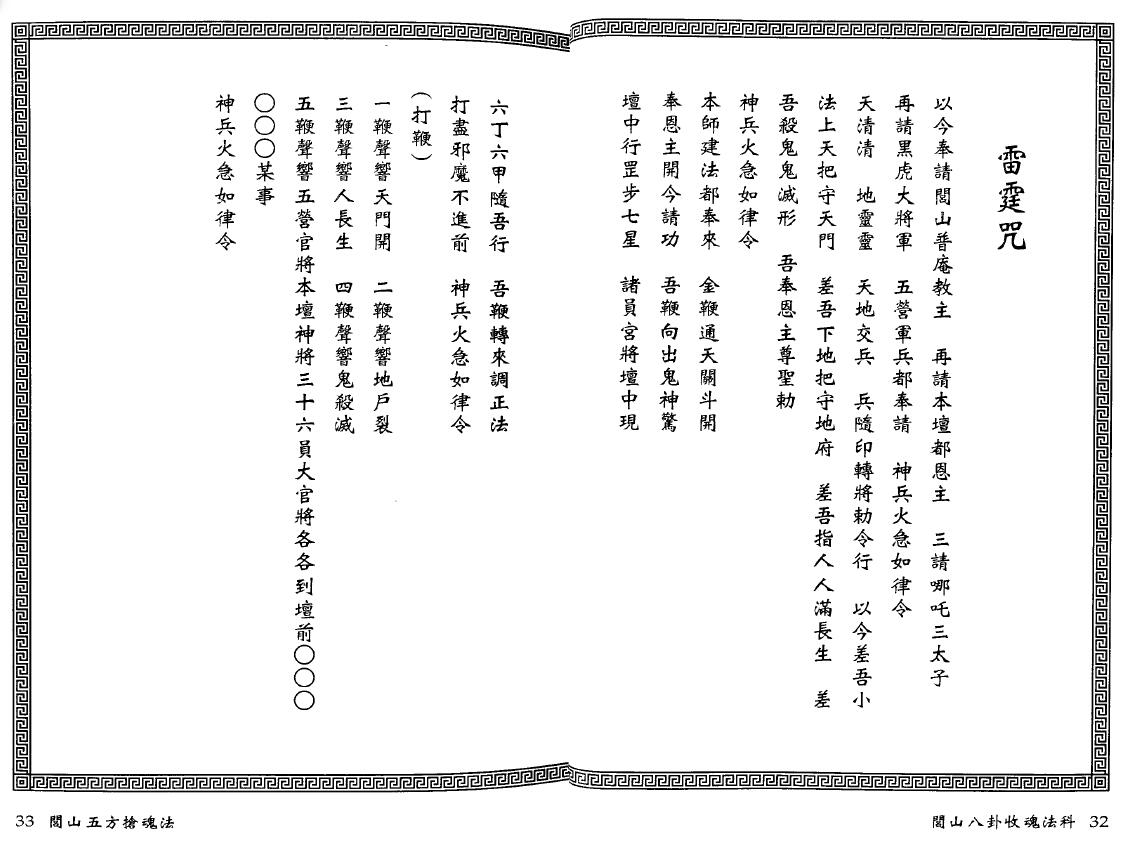 雷霆咒
以今奉請閭山普庵教主　再請本壇都恩主　三請哪吒三太子
再請黑虎大將軍　五營軍兵都奉請　神兵火急如律令
天清清　地靈靈　天地交兵　兵隨印轉將勅令行　以今差吾小
法上天把守天門　差吾下地把守地府　差吾指人人滿長生　差
吾殺鬼鬼滅形　吾奉恩主尊聖勅
神兵火急如律令
本師建法都奉來　金鞭通天關斗開
奉恩主開今請功　吾鞭向出鬼神驚
壇中行罡步七星　諸員宮將壇中現
閭山八卦收魂法科 32
六丁六甲隨吾行　吾鞭轉來調正法
打盡邪魔不進前　神兵火急如律令
（打鞭）
一鞭聲響天門開　二鞭聲響地戶裂
三鞭聲響人長生　四鞭聲響鬼殺滅
五鞭聲響五營官將本壇神將三十六員大官將各各到壇前〇〇〇
〇〇〇某事
神兵火急如律令
33 閭山五方搶魂法